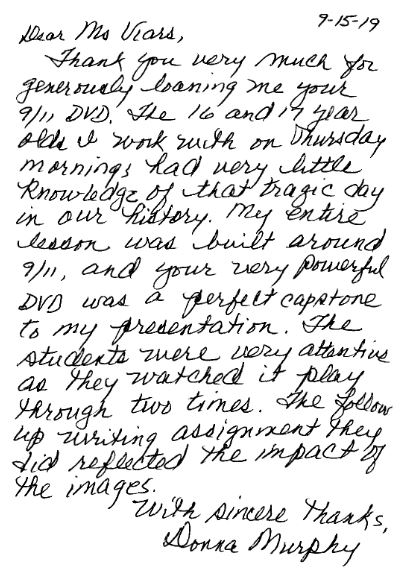 9-15-19
Dear Ms Viars,
Thank you very much for
generously loaning me your
9/11 DVD. The 16 and 17 year
olds I work with on Thursday
mornings had very little
knowledge of that tragic day
in our history. My entire
lesson was built around
9/11, and your very powerful
DVD was a perfect capstone
to my presentation. The
students were very attentive
as they watched it play
through two times. The follow
up writing assignment they
did reflected the impact of
the images.
With sincere thanks,
Donna Murphy